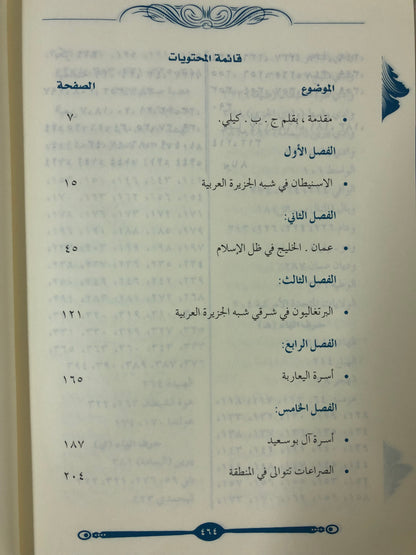 قائمة المحتويات
الموضوع الصفحة
• مقدمة ، بقلم ج . ب . كيلي. ٧
الفصل الأول
• الاستيطان في شبه الجزيرة العربية ١٥
الفصل الثاني:
• عمان . الخليج في ظل الإسلام ٤٥
الفصل الثالث:
• البرتغاليون في شرقي شبه الجزيرة العربية ١٢١
الفصل الرابع:
• أسرة اليعاربة ١٦٥
الفصل الخامس:
• أسرة آل بوسعيد ١٨٧
• الصراعات تتوالى في المنطقة ٢٠٤
٤٦٤